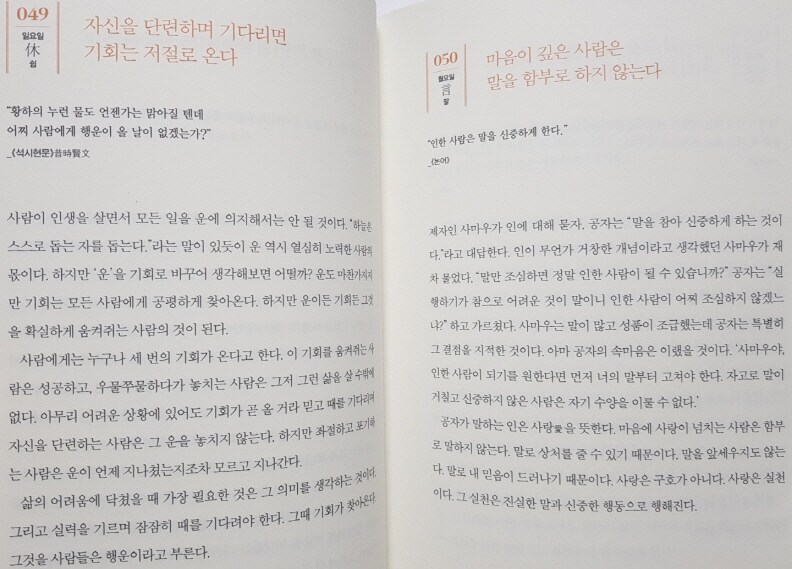 049
일요일
休
쉼
자신을 단련하며 기다리면
기회는 저절로 온다
“황하의 누런 물도 언젠가는 맑아질 텐데
어찌 사람에게 행운이 올 날이 없겠는가?”
_《석시현문》昔時賢文
사람이 인생을 살면서 모든 일을 운에 의지해서는 안 될 것이다. “하늘은
스스로 돕는 자를 돕는다.”라는 말이 있듯이 운 역시 열심히 노력한 사람의
몫이다. 하지만 ‘운’을 기회로 바꾸어 생각해보면 어떨까? 운도 마찬가지지
만 기회는 모든 사람에게 공평하게 찾아온다. 하지만 운이든 기회든 그것
을 확실하게 움켜쥐는 사람의 것이 된다.
사람에게는 누구나 세 번의 기회가 온다고 한다. 이 기회를 움켜쥐는 사
람은 성공하고, 우물쭈물하다가 놓치는 사람은 그저 그런 삶을 살 수밖에
없다. 아무리 어려운 상황에 있어도 기회가 곧 올 거라 믿고 때를 기다리며
자신을 단련하는 사람은 그 운을 놓치지 않는다. 하지만 좌절하고 포기하
는 사람은 운이 언제 지나쳤는지조차 모르고 지나간다.
삶의 어려움에 닥쳤을 때 가장 필요한 것은 그 의미를 생각하는 것이다.
그리고 실력을 기르며 잠잠히 때를 기다려야 한다. 그때 기회가 찾아온다.
그것을 사람들은 행운이라고 부른다.
050
월요일
言
말
마음이 깊은 사람은
말을 함부로 하지 않는다
“인한 사람은 말을 신중하게 한다.”
_《논어》
제자인 사마우가 인에 대해 묻자, 공자는 “말을 참아 신중하게 하는 것이
다.”라고 대답한다. 인이 무언가 거창한 개념이라고 생각했던 사마우가 재
차 물었다. “말만 조심하면 정말 인한 사람이 될 수 있습니까?” 공자는 “실
행하기가 참으로 어려운 것이 말이니 인한 사람이 어찌 조심하지 않겠느
냐?” 하고 가르쳤다. 사마우는 말이 많고 성품이 조급했는데 공자는 특별히
그 결점을 지적한 것이다. 아마 공자의 속마음은 이랬을 것이다. ‘사마우야,
인한 사람이 되기를 원한다면 먼저 너의 말부터 고쳐야 한다. 자고로 말이
거칠고 신중하지 않은 사람은 자기 수양을 이룰 수 없다.’
공자가 말하는 인은 사랑愛을 뜻한다. 마음에 사랑이 넘치는 사람은 함부
로 말하지 않는다. 말로 상처를 줄 수 있기 때문이다. 말을 앞세우지도 않는
다. 말로 내 믿음이 드러나기 때문이다. 사랑은 구호가 아니다. 사랑은 실천
이다. 그 실천은 진실한 말과 신중한 행동으로 행해진다.